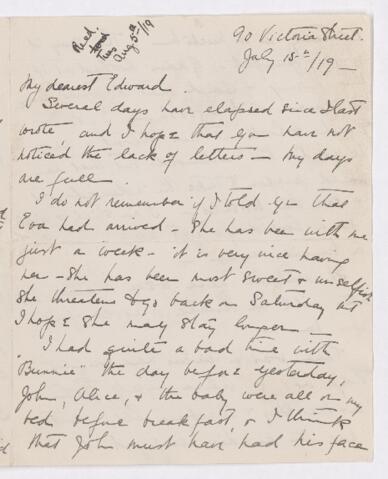 Recd.
Tues
Aug 5th/19
90 Victoria Street.
July 15th/19 —
My dearest Edward.
Several days have elapsed since I last
wrote, and I hope that you have not
noticed the lack of letters — My days
are full.
I do not remember if I told you that
Eva had arrived — She has been with me
just a week — it is very nice having
her — She has been most sweet & unselfish
She threatens to go back on Saturday but
I hope she may stay longer —
I had quite a bad time with
"Bunnie" the day before yesterday,
John, Alice, & the baby were all on my
bed before breakfast, & I think
that John must have had his face